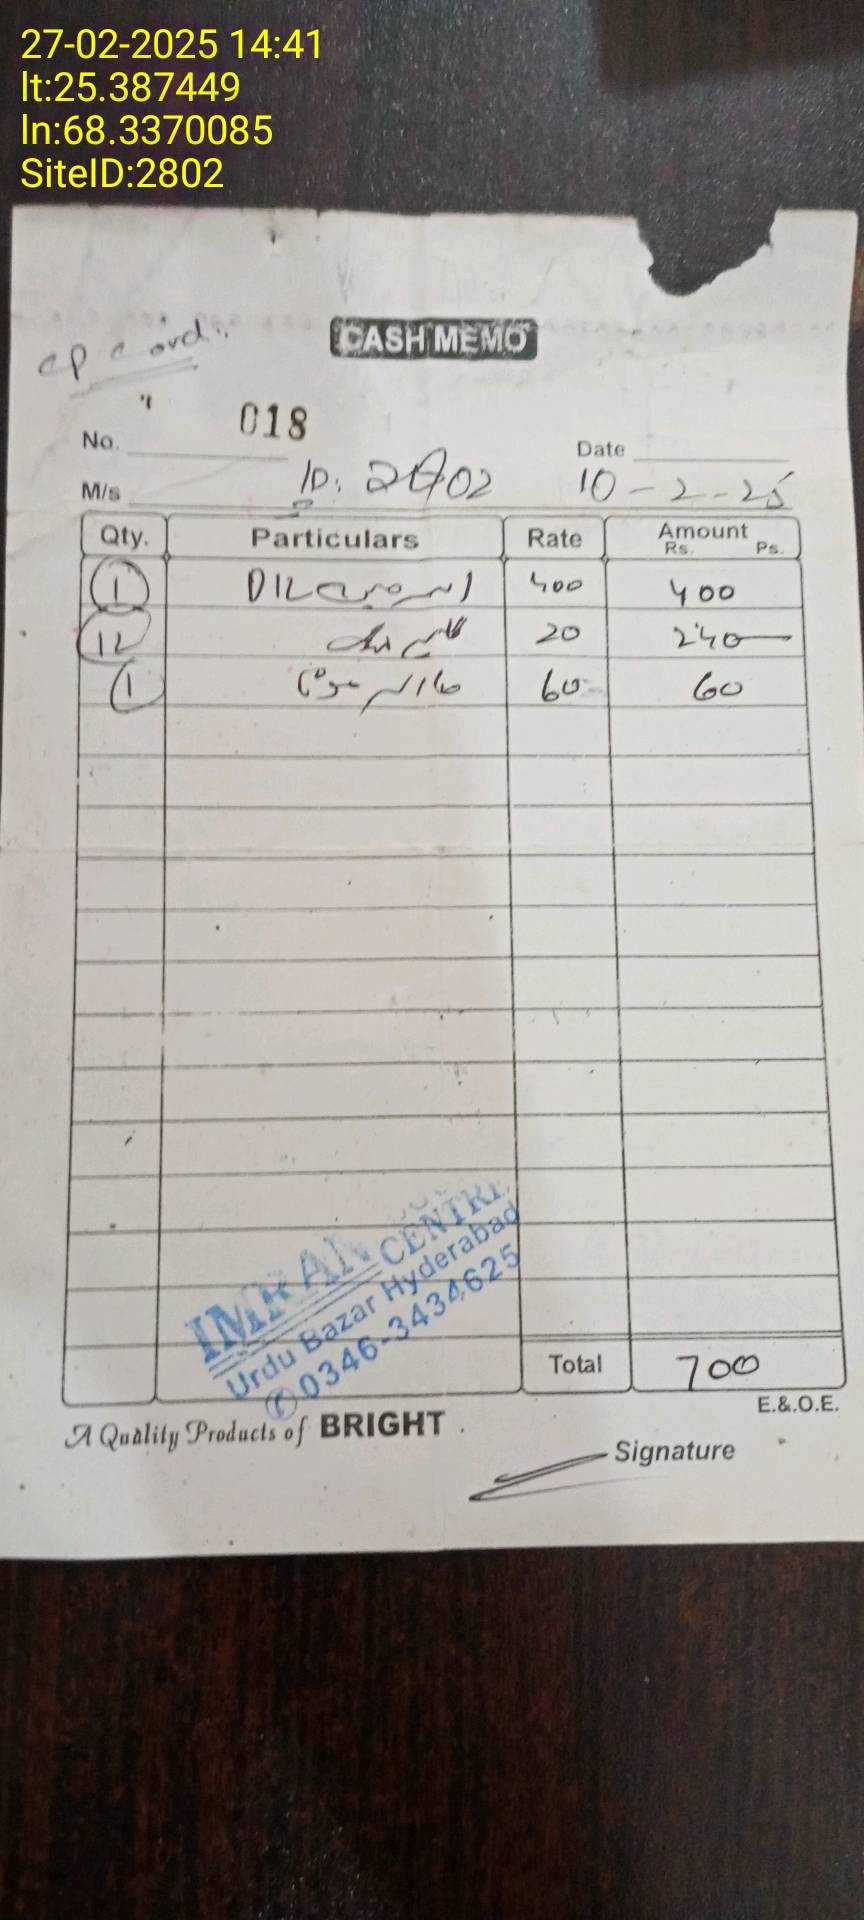 27-02-2025 14:41
lt:25.387449
ln:68.3370085
SiteID:2802
CASH MEMO
No. 018
Date
M/s ID: 2802 10-2-25
Qty. Particulars Rate Amount
Rs. Ps.
1 400 400
12 20 240
1 60 60
IMRAN CENTRE
Urdu Bazar Hyderabad
0346-3434625
Total 700
E.&.O.E.
A Quality Products of BRIGHT
Signature